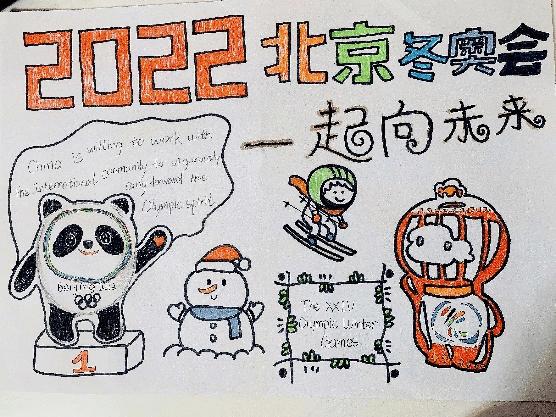 2022 北京冬奥会
一起向未来
China is willing to work with
the international community to vigorously
carry forward the
Olympic spirit
BEIJING 2022
1
The XXIV
Olympic Winter
Games